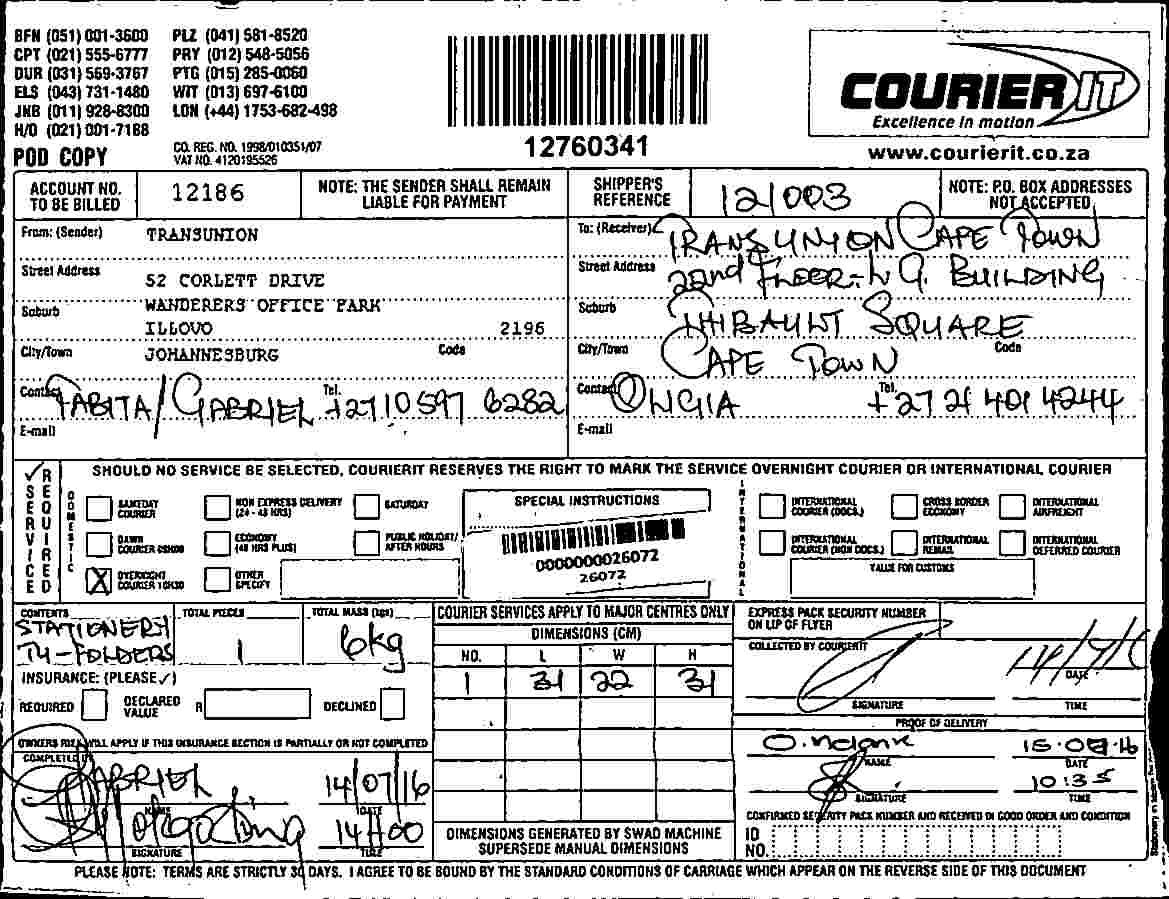 BFN (051) 001-3600 PLZ (041) 581-8520
CPT (021) 555-6777 PRY (012) 548-5056
DUR (031) 569-3767 PTG (015) 285-0060
ELS (043) 731-1480 WIT (013) 697-6100
JNB (011) 928-8300 LON (+44) 1753-682-498
H/O (021) 001-7188
POD COPY
CO. REG. NO. 1998/010351/07
VAT NO. 4120195526
12760341
COURIER IT
Excellence in motion
www.courierit.co.za
ACCOUNT NO. TO BE BILLED 12186
NOTE: THE SENDER SHALL REMAIN LIABLE FOR PAYMENT
SHIPPER'S REFERENCE 121003
NOTE: P.O. BOX ADDRESSES NOT ACCEPTED
From: (Sender) TRANSUNION
Street Address 52 CORLETT DRIVE
Suburb WANDERERS OFFICE PARK
ILLOVO 2196
City/Town JOHANNESBURG Code
Contact TABITA/GABRIEL Tel. +2710597 6282
E-mail
To: (Receiver) TRANSUNION CAPE TOWN
Street Address 22nd FLOOR - LG. BUILDING
Suburb THIBAULT SQUARE
City/Town CAPE TOWN Code
Contact Tel. +27 21 401 4244
E-mail
SERVICE REQUIRED
SHOULD NO SERVICE BE SELECTED, COURIERIT RESERVES THE RIGHT TO MARK THE SERVICE OVERNIGHT COURIER OR INTERNATIONAL COURIER
DOMESTIC
SAMEDAY COURIER
NON EXPRESS DELIVERY (24 - 48 HRS)
SATURDAY
DAWN COURIER
ECONOMY (48 HRS PLUS)
PUBLIC HOLIDAY/ AFTER HOURS
X OVERNIGHT COURIER 10H30
OTHER SPECIFY
SPECIAL INSTRUCTIONS
0000000026072
26072
INTERNATIONAL
INTERNATIONAL COURIER (DOCS.)
CROSS BORDER ECONOMY
INTERNATIONAL AIRFREIGHT
INTERNATIONAL COURIER (NON DOCS.)
INTERNATIONAL REMAIL
INTERNATIONAL DEFERRED COURIER
VALUE FOR CUSTOMS
CONTENTS
STATIONERY
T4-FOLDERS
TOTAL PIECES
1
TOTAL MASS (kgs)
6kg
INSURANCE: (PLEASE ✓)
REQUIRED DECLARED VALUE R DECLINED
OWNERS RISK WILL APPLY IF THIS INSURANCE SECTION IS PARTIALLY OR NOT COMPLETED
COMPLETED BY
GABRIEL 14/07/16
NAME DATE
14H00
SIGNATURE TIME
COURIER SERVICES APPLY TO MAJOR CENTRES ONLY
DIMENSIONS (CM)
NO. L W H
1 31 22 31
DIMENSIONS GENERATED BY SWAD MACHINE SUPERSEDE MANUAL DIMENSIONS
EXPRESS PACK SECURITY NUMBER ON LIP OF FLYER
COLLECTED BY COURIERIT
14/7/16
DATE
SIGNATURE TIME
PROOF OF DELIVERY
NAME DATE
10:35
SIGNATURE TIME
CONFIRMED SECURITY PACK NUMBER AND RECEIVED IN GOOD ORDER AND CONDITION
ID NO.
PLEASE NOTE: TERMS ARE STRICTLY 30 DAYS. I AGREE TO BE BOUND BY THE STANDARD CONDITIONS OF CARRIAGE WHICH APPEAR ON THE REVERSE SIDE OF THIS DOCUMENT